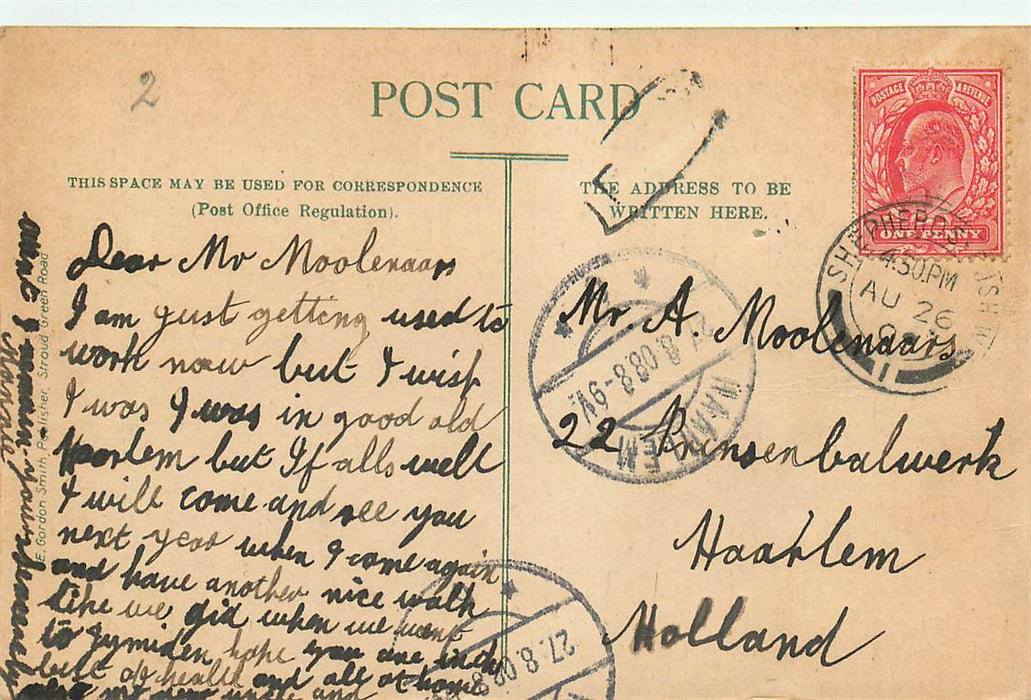 2
POST CARD
THIS SPACE MAY BE USED FOR CORRESPONDENCE
(Post Office Regulation).
THE ADDRESS TO BE
WRITTEN HERE.
POSTAGE & REVENUE
ONE PENNY
SHEPHERDS BUSH W
4.30.PM
AU 26
08
1
HAARLEM
27.8.08 8-9V
Dear Mr Moolenaars
I am just getting used to
work now but I wish
I was I was in good old
Haarlem but If alls well
I will come and see you
next year when I come again
and have another nice walk
like we did when we went
to Iymiden hope you are in the
best of health and all at home
also my dear uncle and
aunt
yours sincerely
E. Gordon Smith, Publisher, Stroud Green Road
Mr A. Moolenaars
22 Prinsenbalwerk
Haarlem
Holland
27.8.08